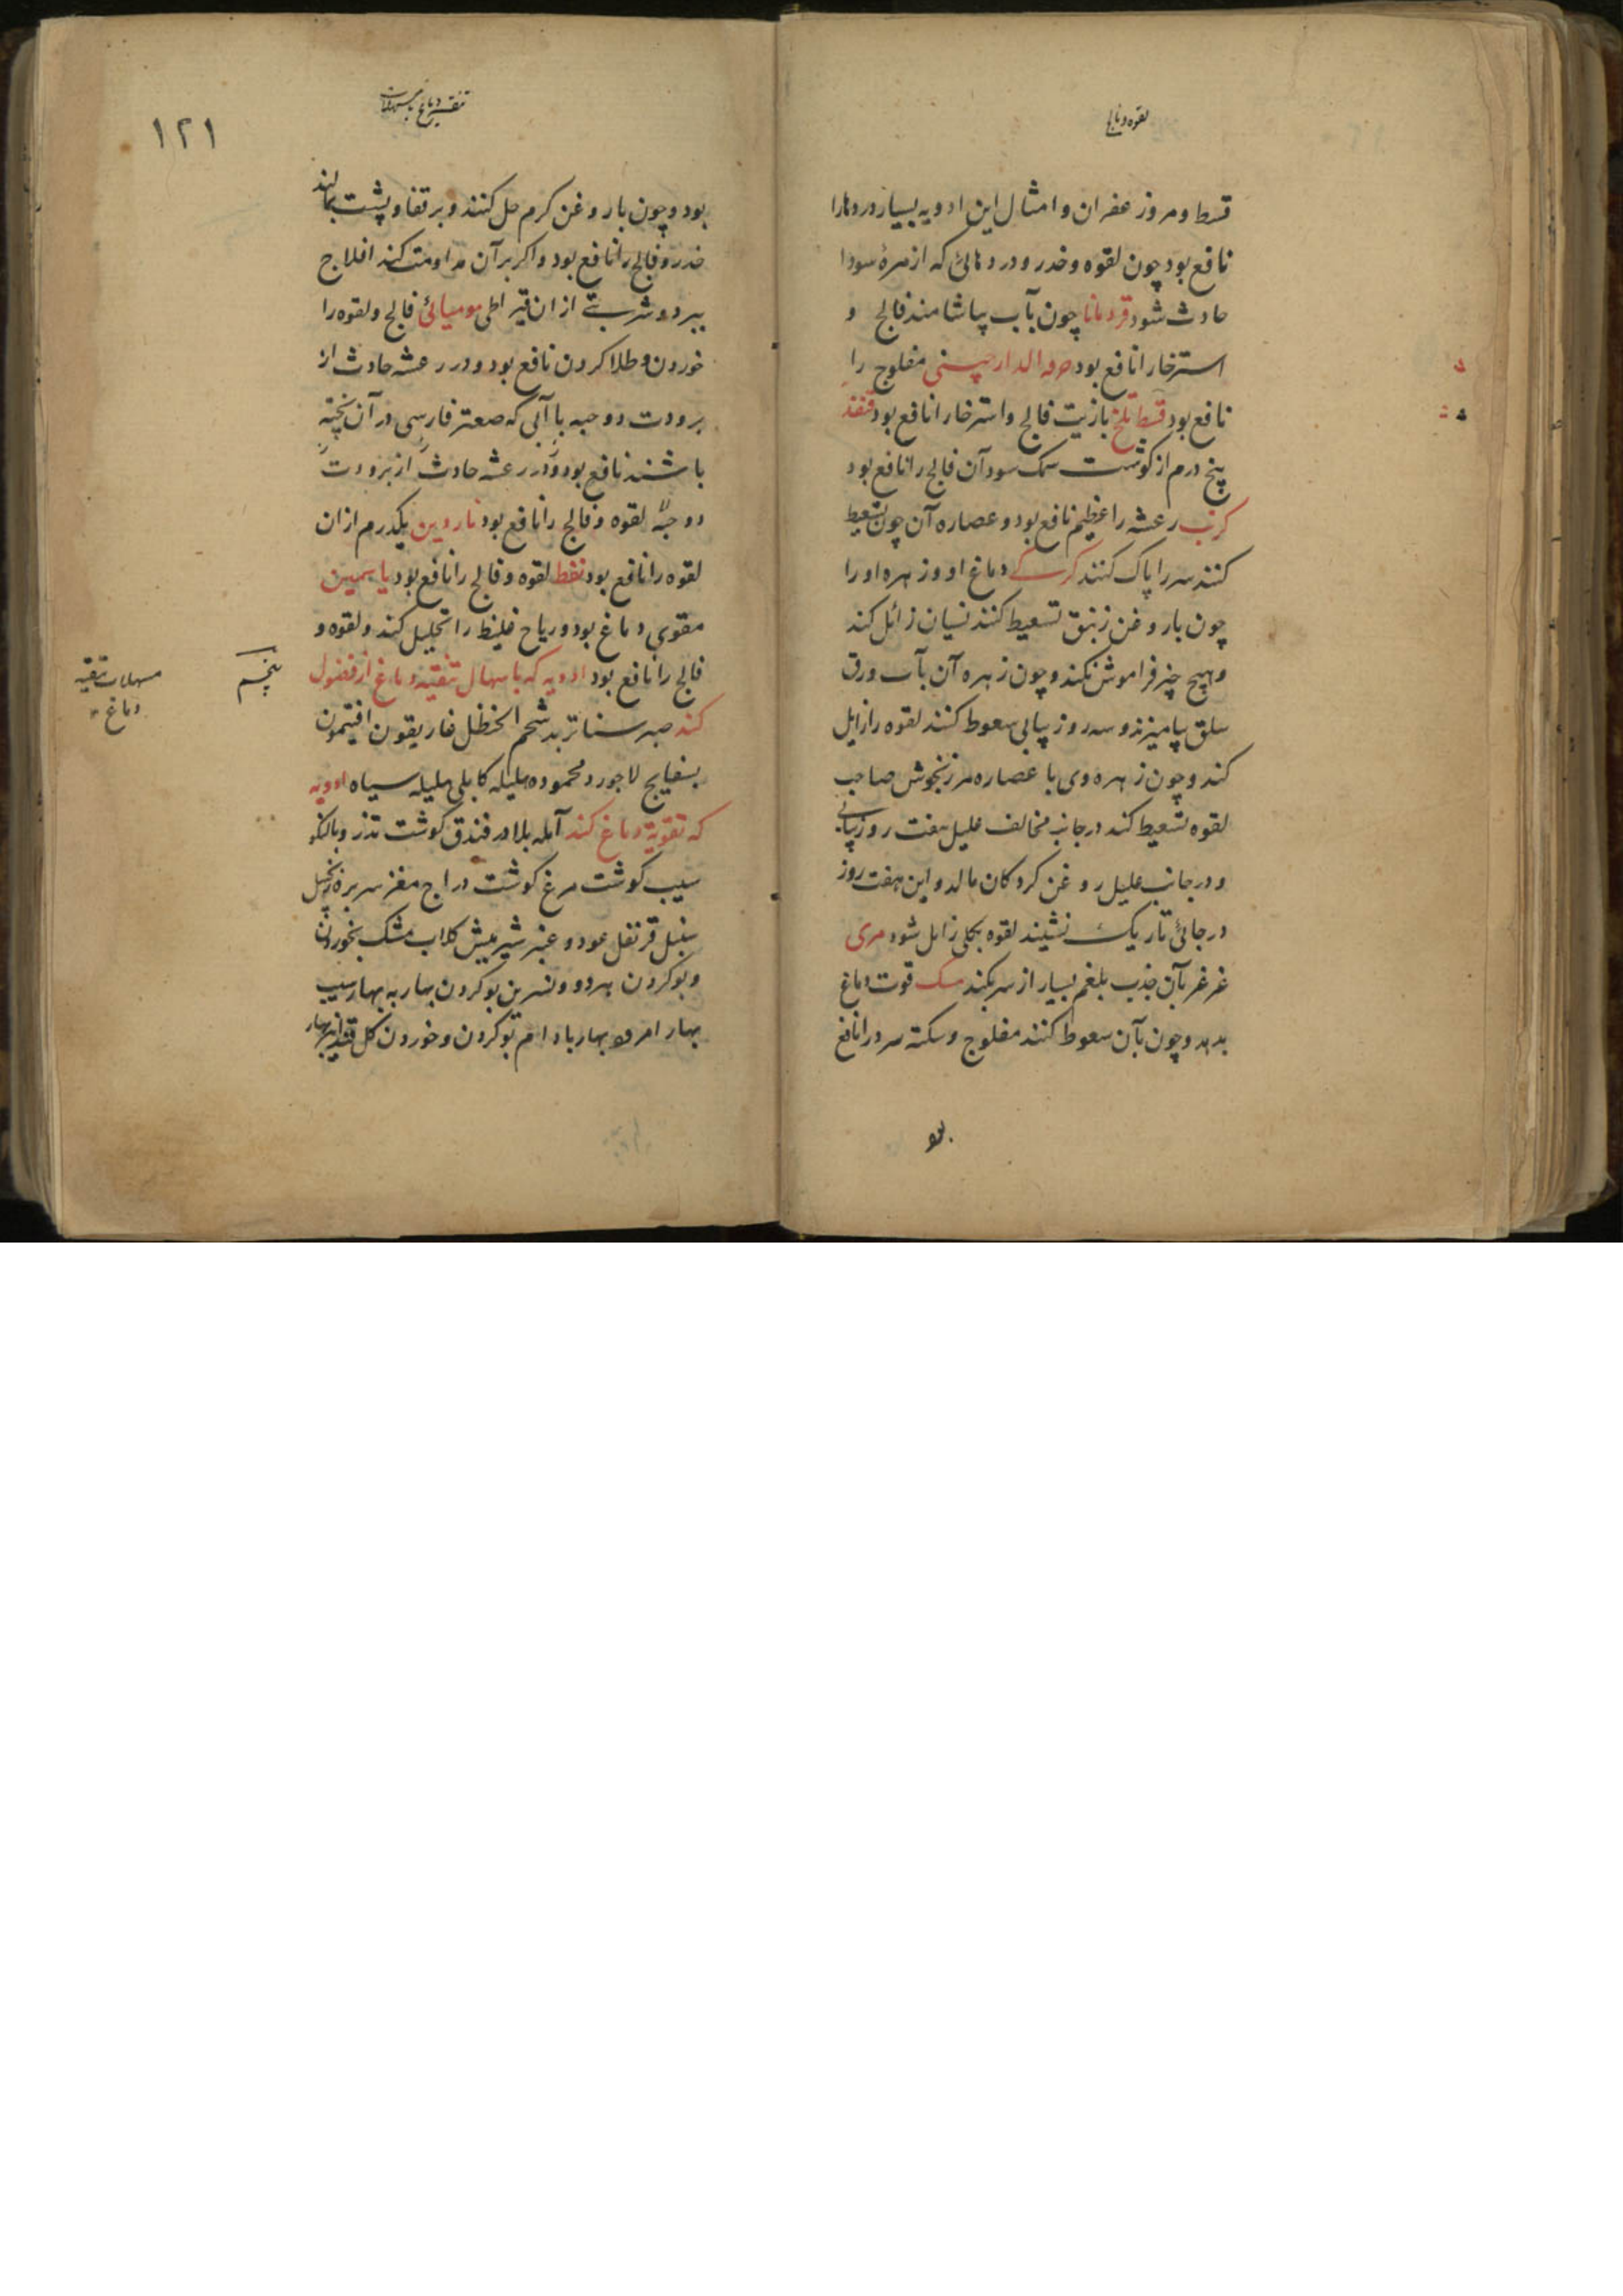 لقوه و فالج
قسط و مر و زعفران و امثال این ادویه بسیار دردها را
نافع بود چون لقوه و خدر و دردهائی که از مرهٔ سودا
حادث شود قردمانا چون بآب بیاشامند فالج و
استرخا را نافع بود الدارچینی مفلوج را
نافع بود قسط تلخ با زیت فالج و استرخا را نافع بود قنفذ
پنج درم از گوشت نمک سود آن فالج را نافع بود
کرنب رعشه را عظیم نافع بود و عصاره آن چون تسعیط
کنند سر را پاک کنند کرکی دماغ او و زهره او را
چون با روغن زنبق تسعیط کنند نسیان زائل کند
و هیچ چیز فراموش نکند و چون زهره آن بآب ورق
سلق بیامیزند و سه روز پیاپی سعوط کنند لقوه را زایل
کند و چون زهره وی با عصاره مرزنجوش صاحب
لقوه تسعیط کند در جانب مخالف علیل هفت روز پیاپی
و در جانب علیل روغن کردکان مالد و این هفت روز
در جائی تاریک نشیند لقوه بکلی زایل شود مری
غرغره بآن جذب بلغم بسیار از سر بکند مسک قوت دماغ
بدهد و چون بآن سعوط کنند مفلوج و سکته سرد را نافع
بود
تنقیه دماغ بامسهلات
۱۲۱
بود و چون با روغن کرم حل کنند و بر قفا و پشت بمالند
خدر و فالج را نافع بود و اکر بر آن مداومت کند افلاج
ببرد و شربتے از ان قیراطی مومیائی فالج و لقوه را
خوردن و طلا کردن نافع بود و در رعشه حادث از
برودت دو حبه با آبی که صعتر فارسی در آن پخته
باشند نافع بود و در رعشه حادث از برودت
دو حبه لقوه و فالج را نافع بود ناردین یکدرم از ان
لقوه را نافع بود نفط لقوه و فالج را نافع بود یاسمین
مقوی دماغ بود و ریاح غلیظ را تحلیل کند و لقوه و
فالج را نافع بود ادویه که باسهال تنقیه دماغ از فضول
پنجم
مسهلات تنقیه
دماغ
کند صبر سنا تربد شحم الحنظل غاریقون افتیمون
بسفایج لاجورد محموده هلیله کابلی هلیله سیاه ادویه
که تقویة دماغ کند آمله بلادر فندق گوشت تذرو بالنکو
سیب گوشت مرغ گوشت دراج مغز سر بره زنجبیل
سنبل قرنفل عود و عنبر شیر میش کلاب مشک بخوردن
و بو کردن بهر دو و نسرین بو کردن بهار به بهار سیب
بهار امرود بهار بادام بو کردن و خوردن کل بهار